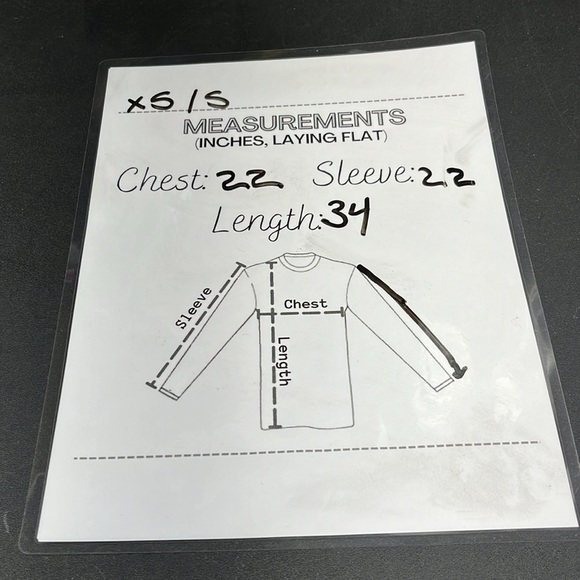 XS/S
MEASUREMENTS
(INCHES, LAYING FLAT)
Chest: 22 Sleeve: 22
Length: 34
Sleeve
Chest
Length